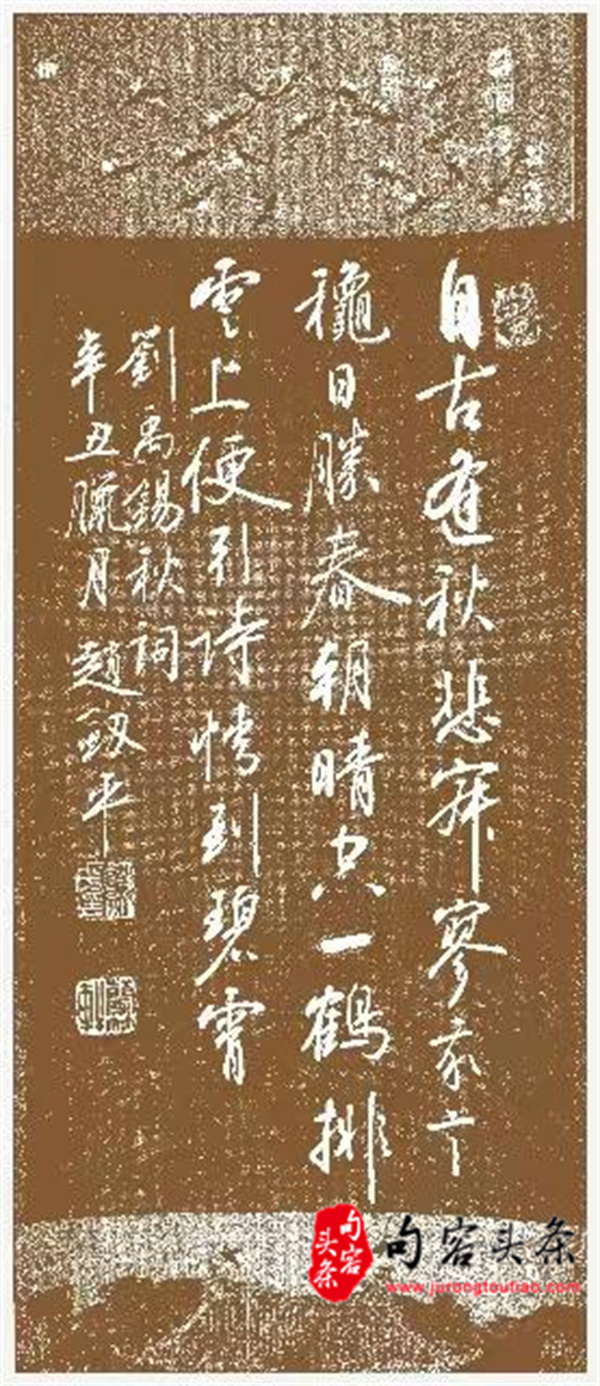 自古逢秋悲寂寥我言
穐日勝春朝晴空一鶴排
雲上便引詩情到碧霄
劉禹錫秋詞
辛丑臘月趙平
句容头条
句容头条
www.jurongtoutiao.com